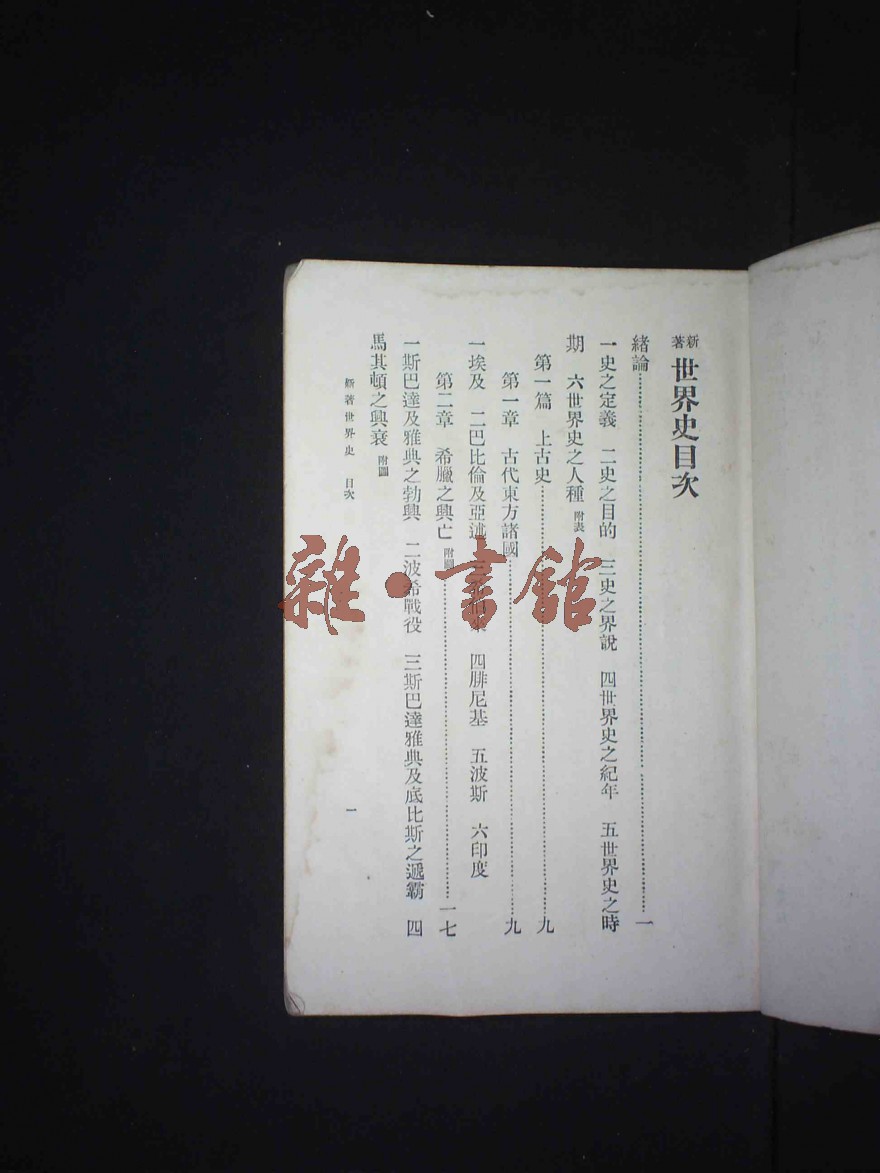 新著世界史目次
緒論……一
一史之定義　二史之目的　三史之界說　四世界史之紀年　五世界史之時
期　六世界史之人種　附表
第一篇　上古史……九
第一章　古代東方諸國……九
一埃及　二巴比倫及亞述　四腓尼基　五波斯　六印度
第二章　希臘之興亡　附圖……一七
一斯巴達及雅典之勃興　二波希戰役　三斯巴達雅典及底比斯之遞霸　四
馬其頓之興衰　附圖
新著世界史　目次　一
雜·書館